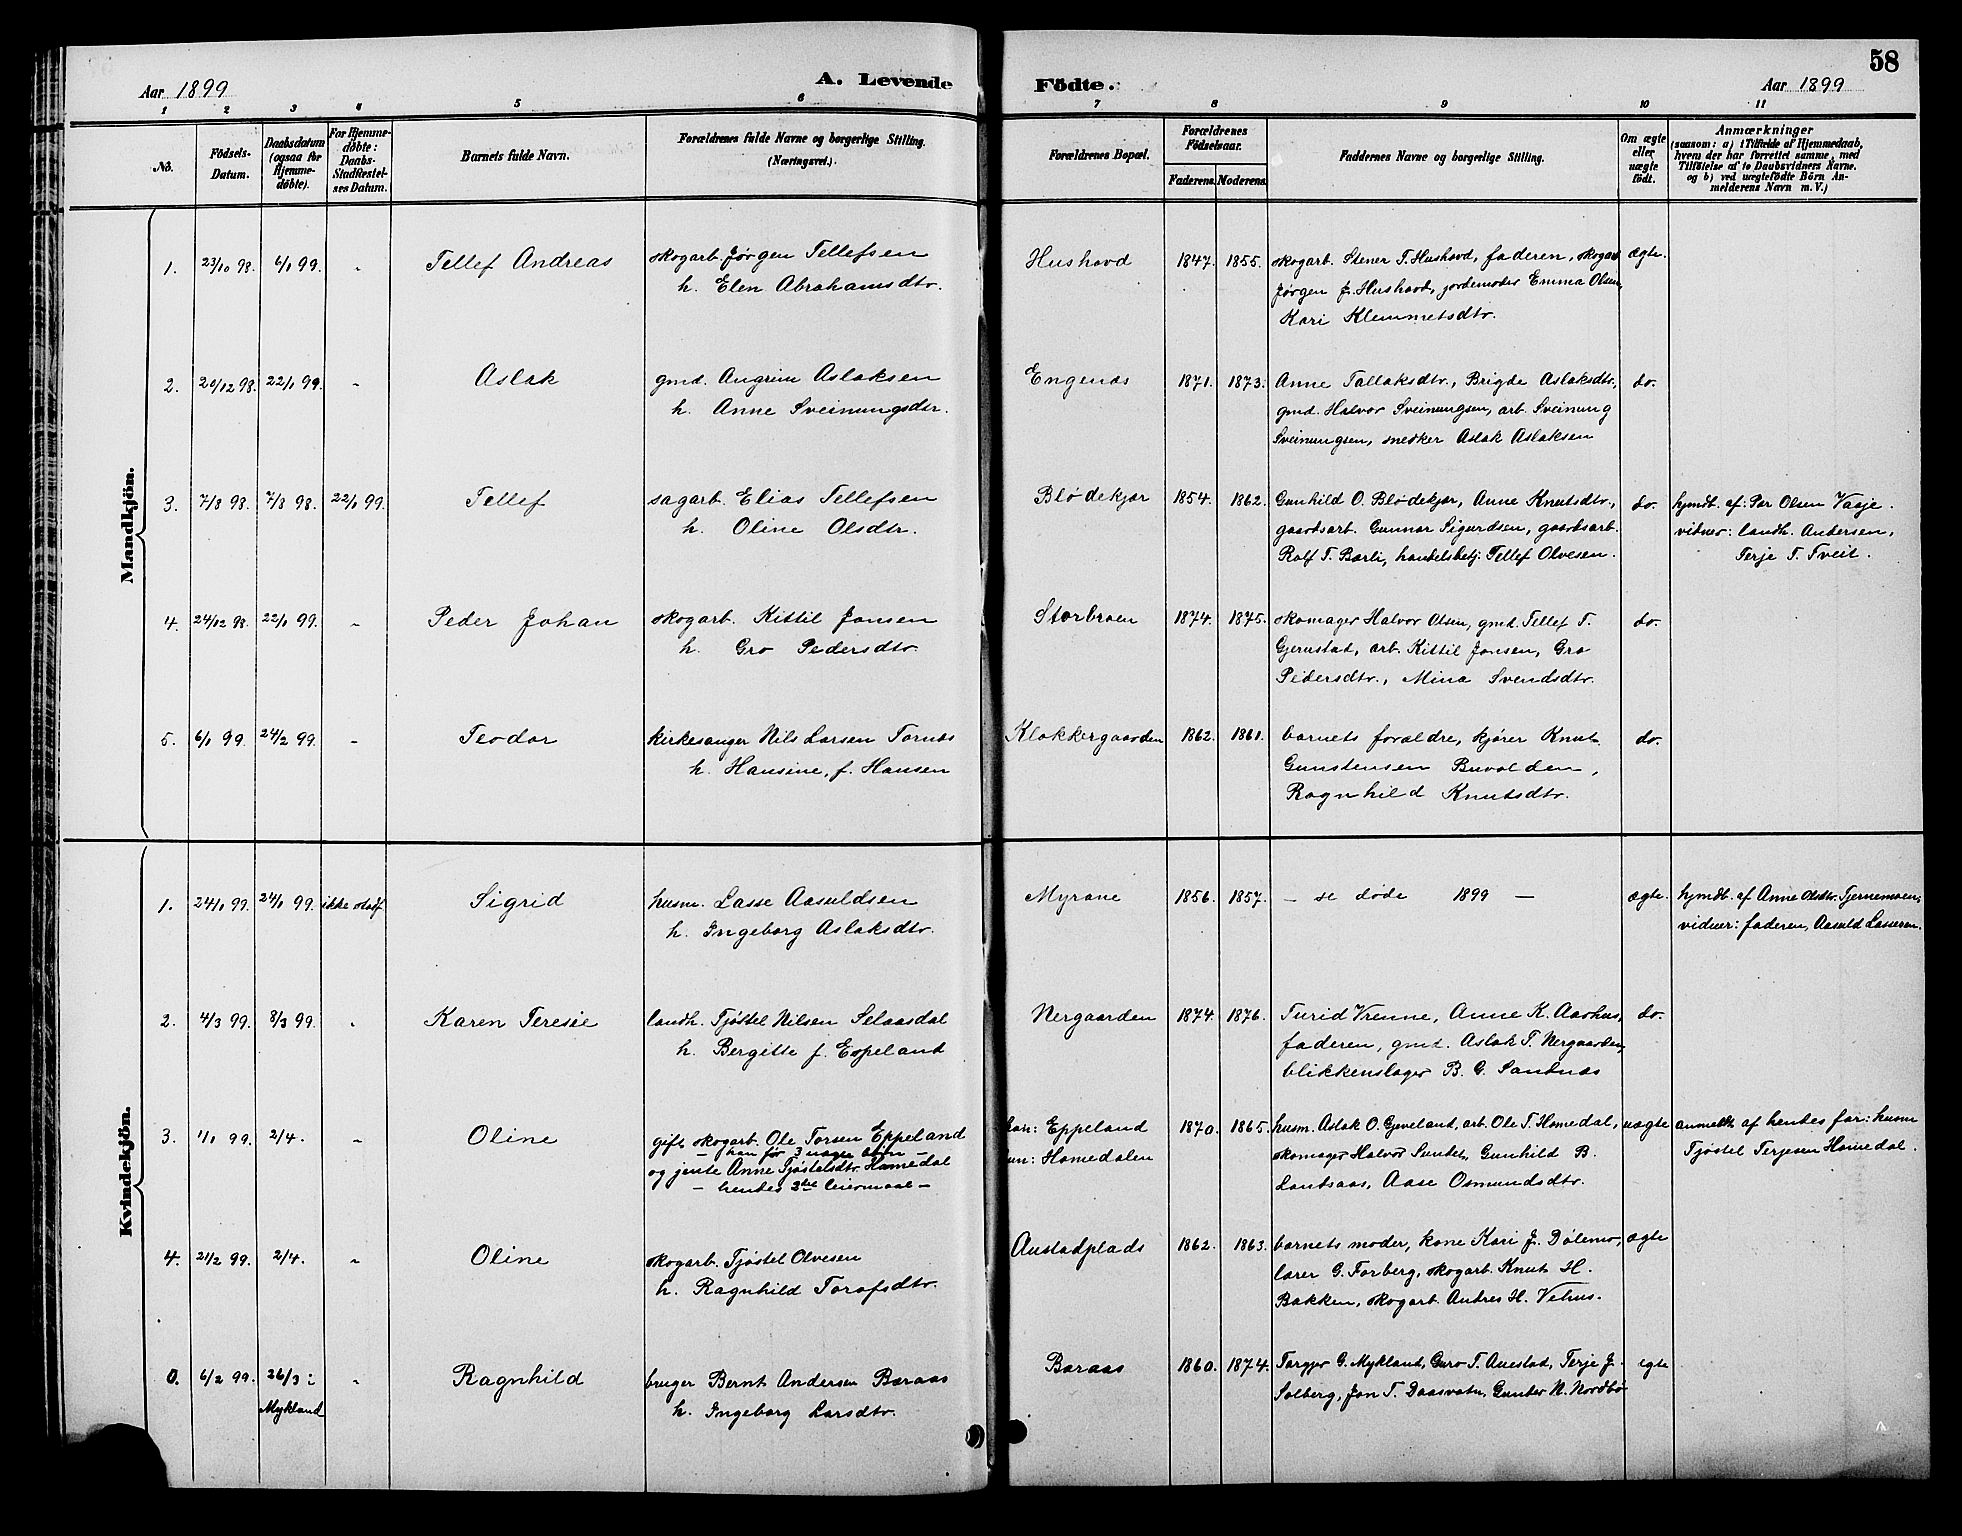 58
Aar 1899
A. Levende Födte.
Aar 1899
1 2 3 4 5 6 7 8 9 10 11
No.
Födsels-Datum.
Daabsdatum (ogsaa for Hjemme-døbte).
For Hjemme-døbte: Daabs-Stadfæstel-ses Datum.
Barnets fulde Navn.
Forældrenes fulde Navne og borgerlige Stilling. (Næringsvei.)
Forældrenes Bopæl.
Forældrenes Födselsaar.
Faderens. Moderens.
Faddernes Navne og borgerlige Stilling.
Om ægte eller uægte født.
Anmærkninger
(saasom: a) i Tilfælde af Hjemmedaab,
hvem der har forrettet samme, med
Tilföielse af to Daabsvidners Navne.
og b) ved uægtefödte Börn An-
melderens Navn m. V.)
Mandkjön.
1. 23/10 98. 6/1 99. " Tellef Andreas
skogarb. Jørgen Tellefsen
h. Elen Abrahamsdtr.
Hushovd 1847. 1855.
skogarb. Stener T. Hushovd, faderen, skogarb
Jørgen J. Hushovd, jordemoder Emma Olsen,
Kari Klemmetsdtr.
ægte.
2. 20/12 98. 22/1 99. " Aslak
gmd. Angrim Aslaksen
h. Anne Sveinungsdtr.
Engenæs 1871. 1873.
Anne Tallaksdtr., Brigde Aslaksdtr,
gmd. Halvor Sveinungsen, arb. Sveinung
Sveinungsen, snedker Aslak Aslaksen
do.
3. 7/8 98. 7/8 98. 22/1 99. Tellef
sagarb. Elias Tellefsen
h. Oline Olsdtr.
Blødekjær 1854. 1862.
Gunhild O. Blødekjær, Anne Knutsdtr,
gaardsarb. Gunnar Sigurdsen, gaardsarb.
Rolf T. Barli, handelsbetj: Tellef Olvesen.
do.
hjmdb. af: Per Olsen Vaaje.
vidner: landh. Andersen,
Terje T. Tveit.
4. 24/12 98. 22/1 99. " Peder Johan
skogarb. Kittil Jonsen
h. Gro Pedersdtr.
Storbroen 1874. 1875.
skomager Halvor Olsen, gmd. Tellef T.
Gjerustad, arb. Kittil Jonsen, Gro
Pedersdtr., Mina Svendsdtr.
do.
5. 6/1 99. 24/2 99. - Teodor
kirkesanger Nils Larsen Tornes
h. Hansine, f. Hansen
Klokkergaarden 1862. 1861.
barnets forældre, kjører Knut
Gunstensen Buvolden,
Ragnhild Knutsdtr.
do.
Kvindekjön.
1. 24/1 99. 24/1 99. ikke stadf. Sigrid
husm. Lasse Aasuldsen
h. Ingeborg Aslaksdtr.
Myrane 1856. 1857.
– se døde 1899 –
ægte.
hjmdb. af Anne Olsdtr. Tjernemoen;
vidner: faderen, Aasuld Lassesen.
2. 4/3 99. 8/3 99. " Karen Teresie
landh. Tjøstel Nilsen Selaasdal
h. Bergitte f. Espeland
Nergaarden 1874. 1876.
Turid Vrenne, Anne K. Aarhus,
faderen, gmd. Aslak T. Nergaarden,
blikkenslager B. G. Sandnæs
do.
3. 1/1 99. 2/4. " Oline
gift skogarb. Ole Torsen Eppeland
– han før 3 uægte børn –
og jente Anne Tjøstelsdtr. Homedal
– hendes 2det leiermaal –
han: Eppeland
hun: Homedalen
1870. 1865.
husm. Aslak O. Gjeveland, arb. Ole T. Homedal,
skomager Halvor Sundet, Gunhild B.
Landsaas, Aase Osmundsdtr.
uægte
anmeldt af hendes far: husm
Tjøstel Terjesen Homedal.
4. 21/2 99. 2/4. " Oline
skogarb. Tjøstel Olvesen
h. Ragnhild Torofsdtr.
Austadplads 1862. 1863.
barnets moder, kone Kari J. Dølemo,
lærer G. Forberg, skogarb. Knut H.
Bakken, skogarb. Andres H. Vehus.
ægte
0. 6/2 99. 26/3 i Mykland " Ragnhild
bruger Bernt Andersen Baraas
h. Ingeborg Larsdtr.
Baraas 1860. 1874.
Torgjer G. Mykland, Guro T. Auestad, Terje J.
Solberg, Jon T. Daasvatn, Gunder N. Nordbø
egte